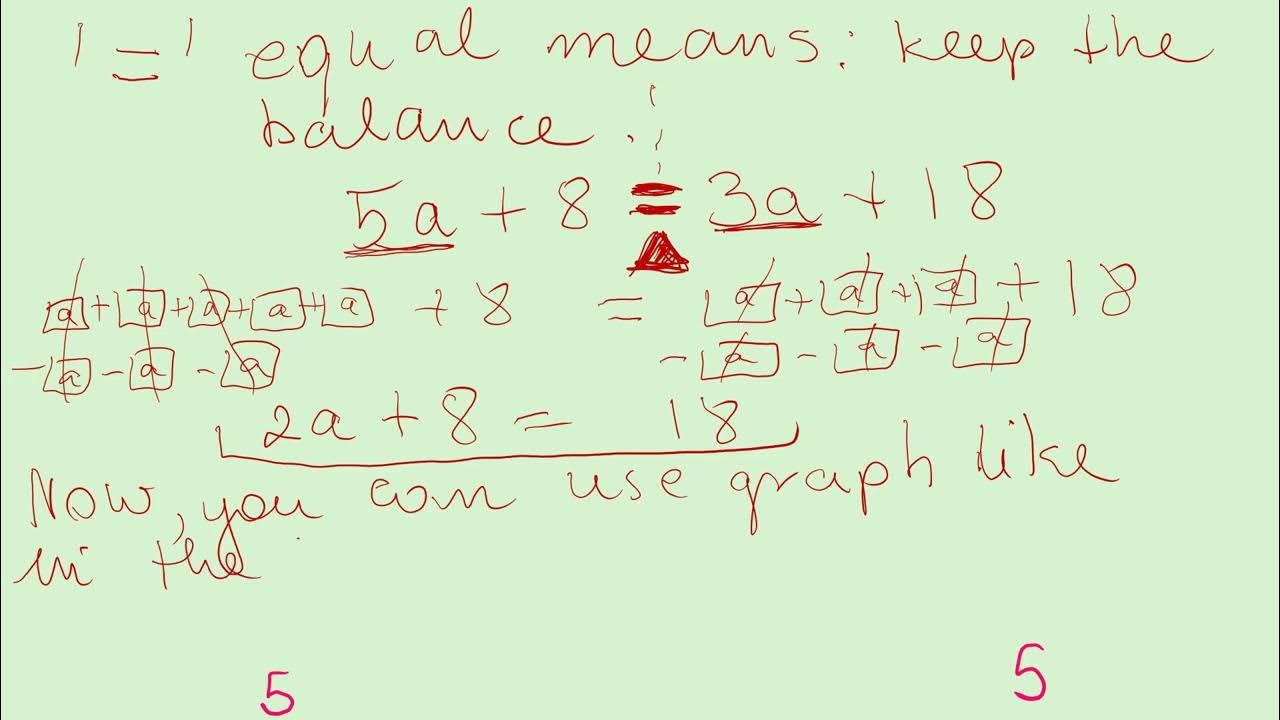 1 = 1 equal means: keep the
balance.
5a + 8 = 3a + 18
a + a + a + a + a + 8 = a + a + a + 18
- a - a - a - a - a - a
2a + 8 = 18
Now, you can use graph like
in the
5 5